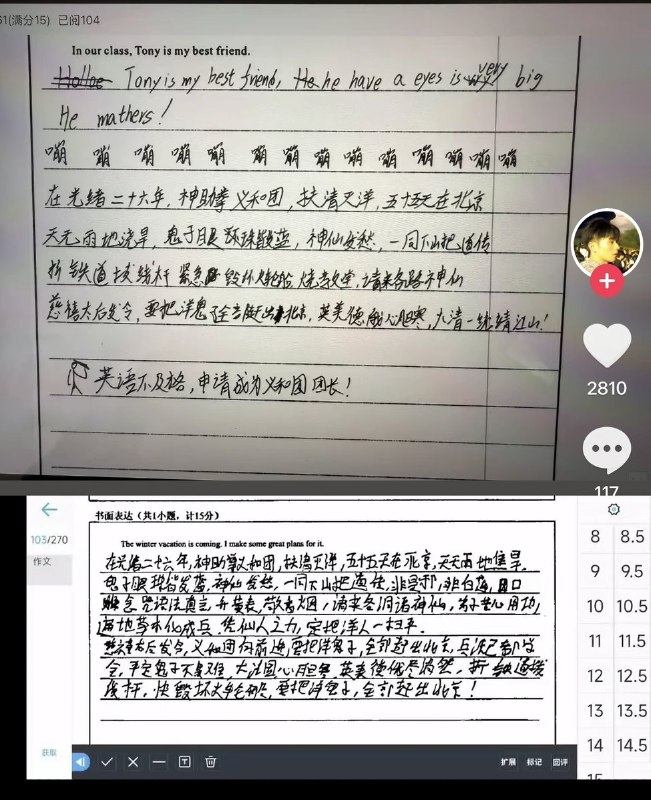 61(满分15) 已阅104
In our class, Tony is my best friend.
Tony is my best friend, he have a eyes is very big
He mathers!
嘣 嘣 嘣 嘣 嘣 嘣 嘣 嘣 嘣 嘣 嘣 嘣 嘣 嘣
在光绪二十六年,神助拳义和团,扶清灭洋,五十五天在北京
天无雨地浇旱,鬼子眼珠都蓝,神仙发愁,一同下山把道传
拆铁道 拔线杆 紧急 毁坏火轮船 烧教堂,请来各路神仙
慈禧太后发令,要把洋鬼子全部赶出北京,英美德俄心胆寒,大清一统靖江山!
英语不及格,申请成为义和团团长!
2810
117
103/270
作文
书面表达(共1小题,计15分)
The winter vacation is coming. I make some great plans for it.
在光绪二十六年,神助拳义和团,扶清灭洋,五十五天在北京,天无雨地焦旱,
鬼子眼珠皆发蓝,神仙发愁,一同下山把道传,非是邪,非白莲,口
念咒语法真言,升黄表,敬香烟,请来各洞诸神仙,
遍地草木化成兵,凭仙人之力,定把洋人一扫平.
慈禧太后发令,义和团向前进,要把洋鬼子,全部赶出北京,
大法国心胆寒,英美德俄尽消然,拆铁道拔
线杆,快毁坏火轮船,要把洋鬼子,全部赶出北京!
8 8.5
9 9.5
10 10.5
11 11.5
12 12.5
13 13.5
14 14.5
15
获取
扩展 标记 回评